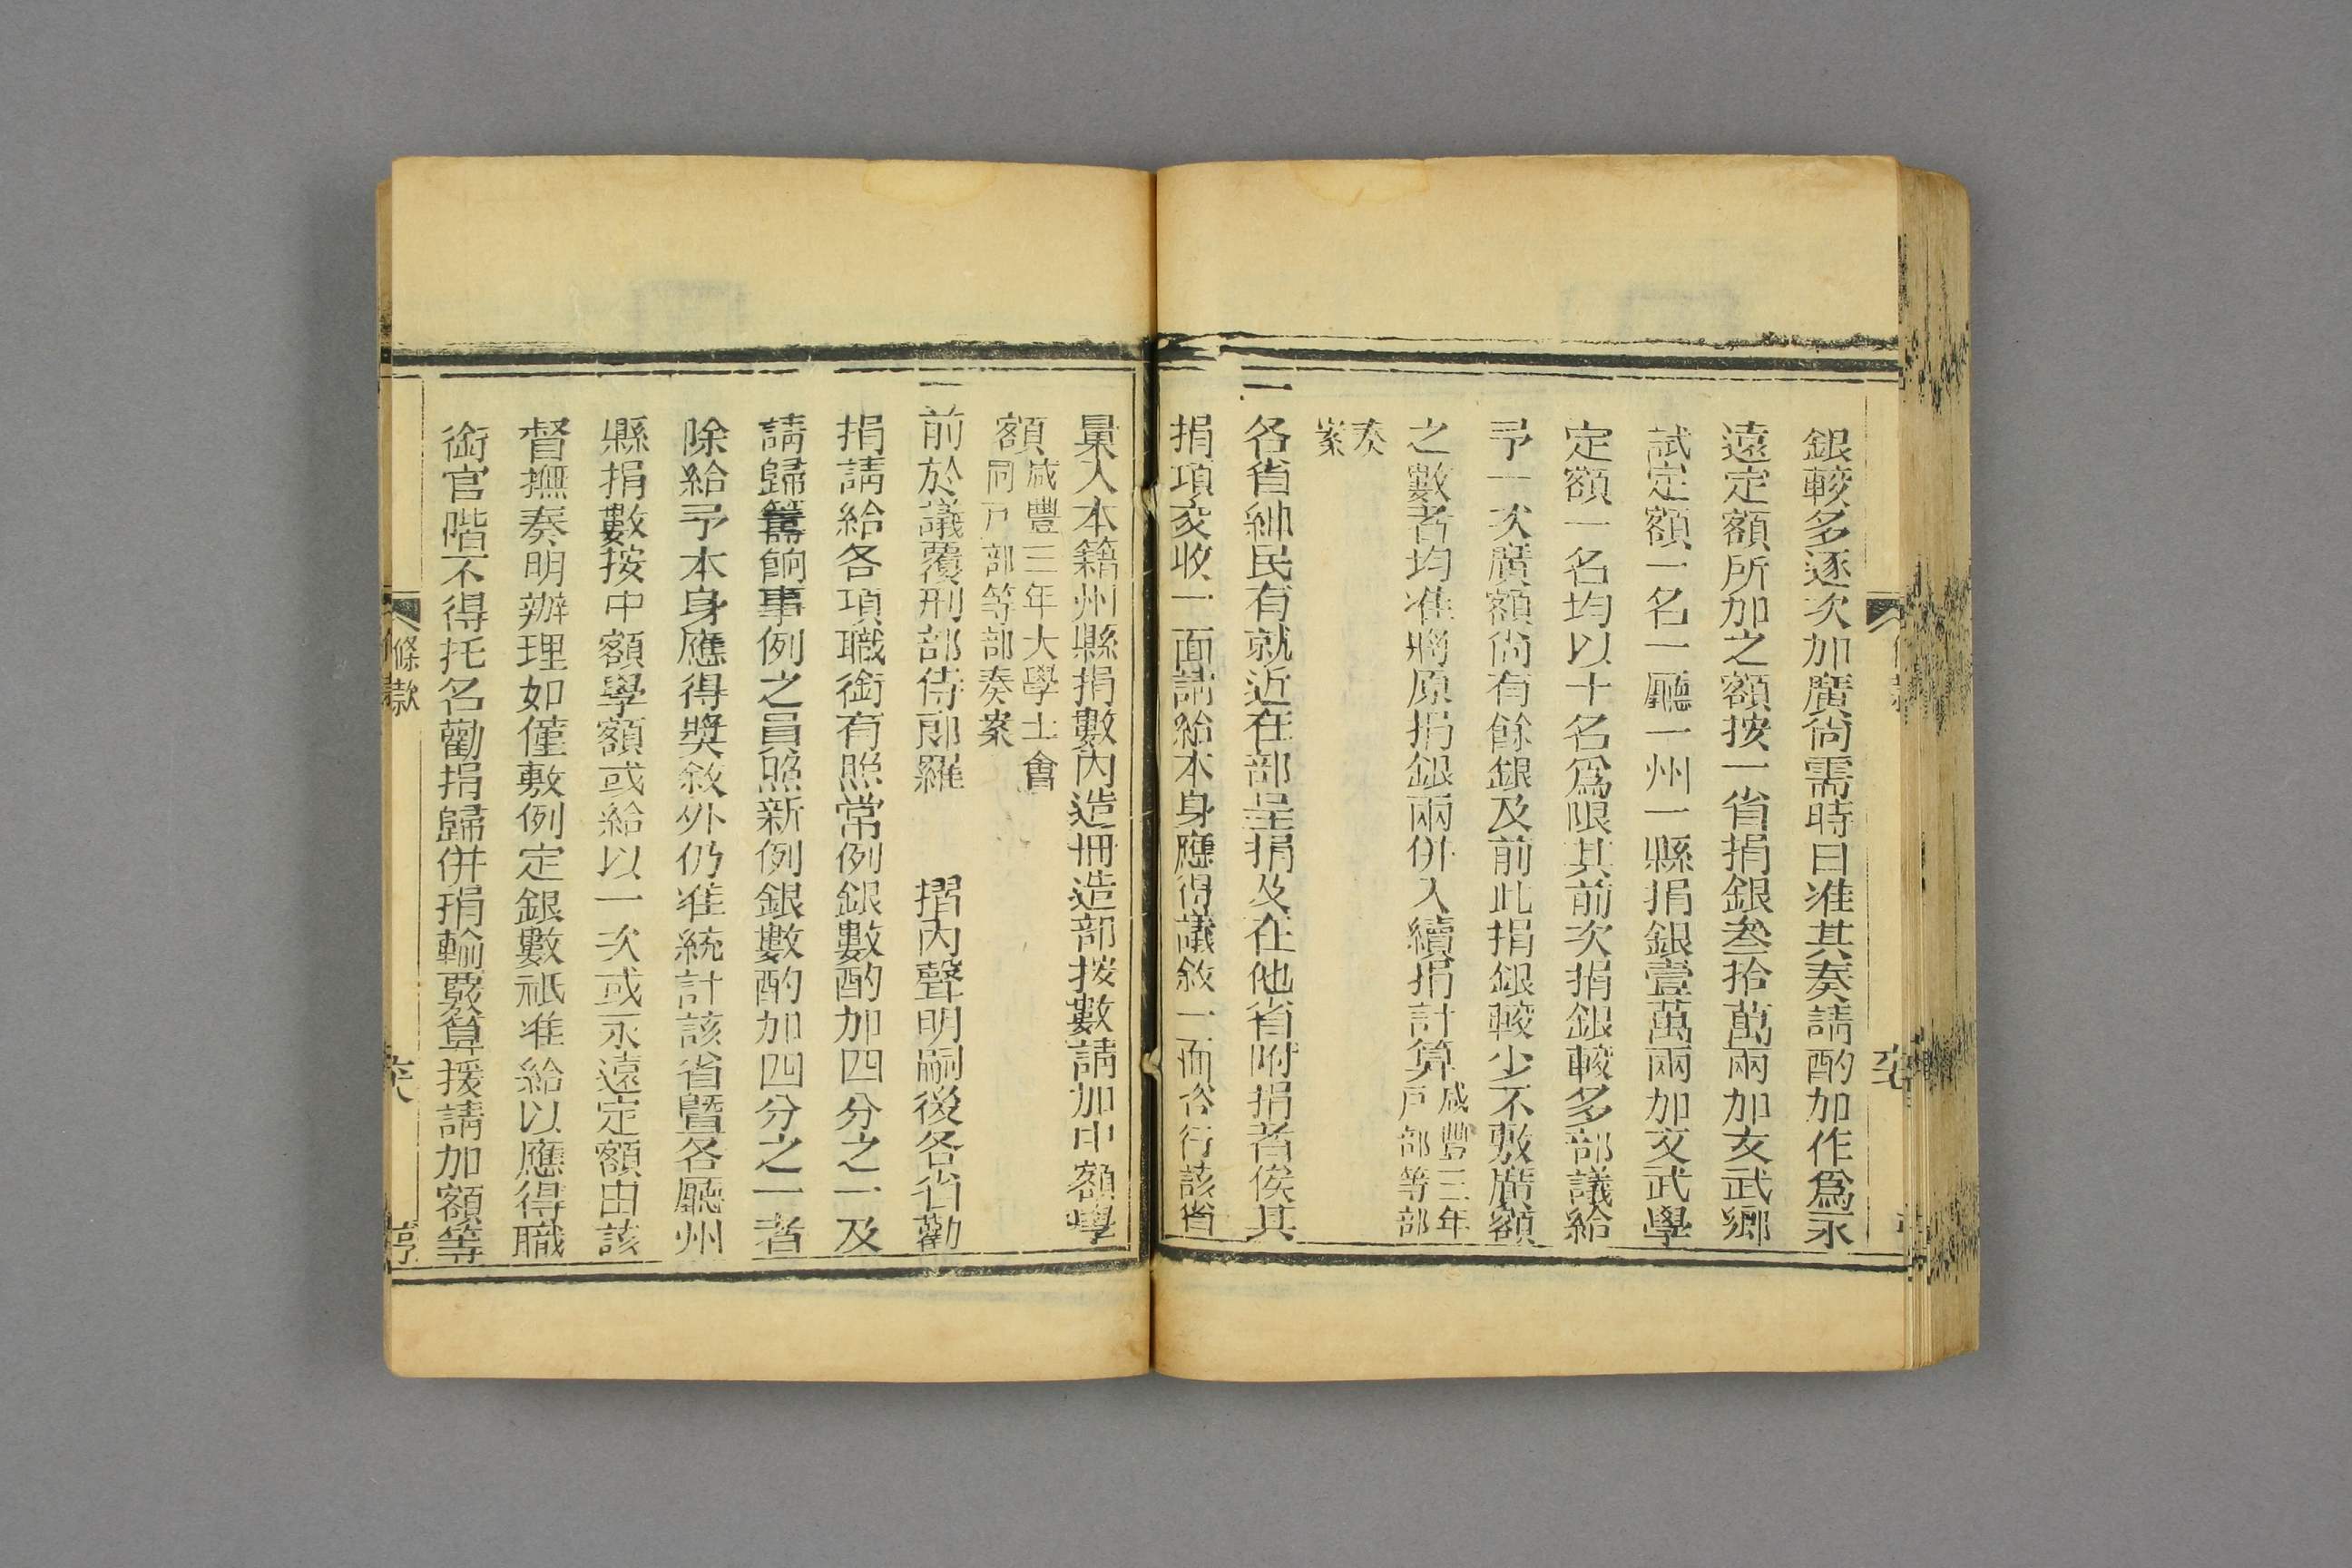 銀較多逐次加廣尙需時日准其奏請酌加作爲永
遠定額所加之額按一省捐銀叁拾萬兩加文武鄉
試定額一名一廳一州一縣捐銀壹萬兩加文武學
定額一名均以十名爲限其前次捐銀較多部議給
予一次廣額尙有餘銀及前此捐銀較少不敷廣額
之數者均准將原捐銀兩併入續捐計算咸豐三年
戶部等部
奏
案
一各省紳民有就近在部呈捐及在他省附捐者俟其
捐項交收一面請給本身應得議敘一面咨行該省
彙入本籍州縣捐數內造冊造部按數請加中額學
額咸豐三年大學士會
同戶部等部奏案
一前於議覆刑部侍郎羅 摺內聲明嗣後各省勸
捐請給各項職銜有照常例銀數酌加四分之一及
請歸籌餉事例之員照新例銀數酌加四分之一者
除給予本身應得獎敘外仍准統計該省曁各廳州
縣捐數按中額學額或給以一次或永遠定額由該
督撫奏明辦理如僅敷例定銀數祇准給以應得職
銜官階不得托名勸捐歸併捐輸覈算援請加額等
條款